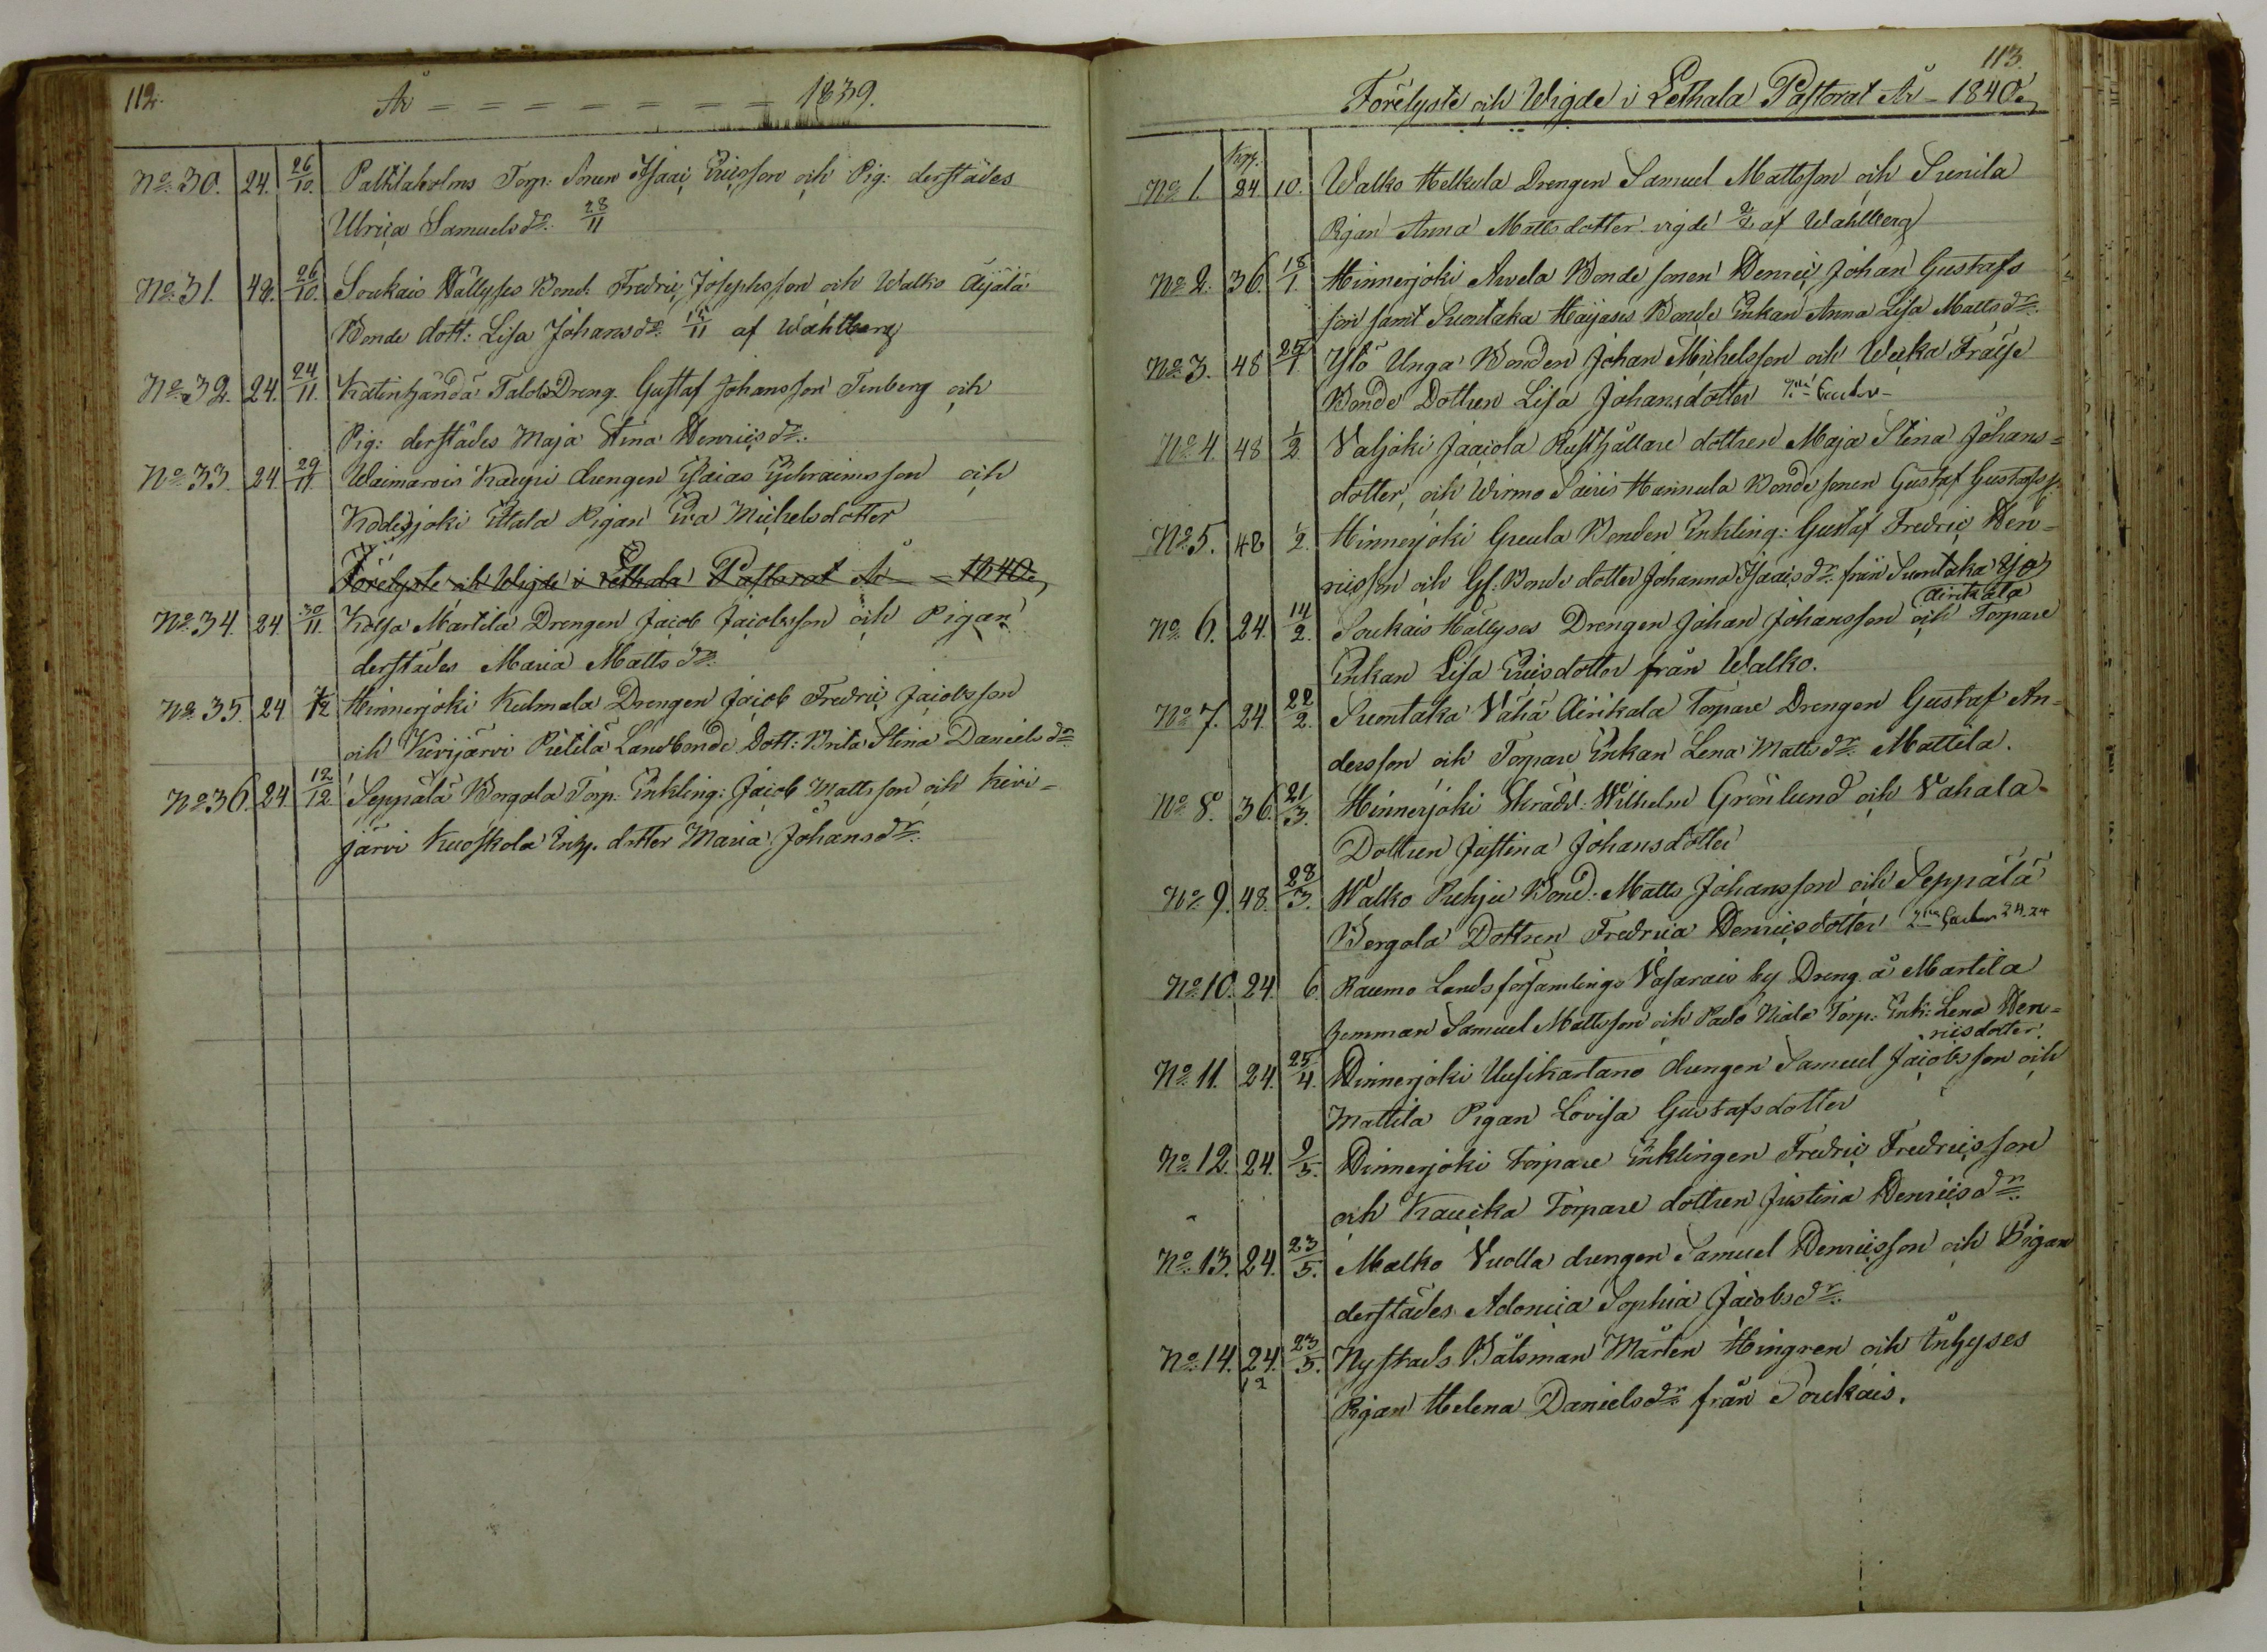 112.
År - - - - - - - - 1839.
No 30. 24. 26/10. Palttilaholms Torp: Sonen Isaac Ericsson och Pig: derstädes
Ulrica Samuelsdr. 28/11
No 31. 48. 26/10. Soukais Hällyses Bond: Fredric Josephsson och Walko Äijälä
Bonde dott: Lisa Johansdr. 15/11 af Wahlberg
No 32. 24. 24/11. Katinhändä Talola Dreng. Gustaf Johansson Tenberg och
Pig: derstädes Maja Stina Henricsdr.
No 33. 24. 29/11. Waimarois Kauppi drengen Esaias Ephraimsson och
Kodisjoki Eitala Pigan Eva Michelsdotter
Förelyste och Wigde i Lethala Pastorat År - 1840.
No 34. 24 30/11. Kolsa Martila Drengen Jacob Jacobsson och Pigan
derstädes Maria Mattsdr.
No 35. 24 1/12 Hinnerjoki Kulmala Drengen Jacob Fredric Jacobsson
och Kivijärvi Pietilä Landbonde Dott: Brita Stina Danielsdr
No 36. 24 12/12 Seppälä Borgola Torp. Enkling: Jacob Mattsson och Kivi=
järvi Kuoskola Inh. dotter Maria Johansdr.
113.
Förelyste och Wigde i Lethala Pastorat År - 1840.
Kop.
No 1. 24 10. Walko Helkula Drengen Samuel Mattsson och Sunila
Pigan Anna Mattsdotter vigde af Wahlberg
No 2. 36. 18/1. Hinnerjoki Arvela Bonde sonen Henric Johan Gustafs
son samt Suontaka Häijäses Bonde Enkan Anna Lisa Mattsdr.
No 3. 48 25/1 Ylö Unga Bonden Johan Michelsson och Wecka Fräise
Bonde Dottren Lisa Johansdotter
No 4. 48 1/2 Valjoki Jaacola Rusthållare dottren Maja Stina Johans=
dotter, och Wirmo Saéris Hannula Bonde sonen Gustaf Gustafss.
No 5. 48 1/2. Hinnerjoki Greula Bonden Enkling: Gustaf Fredric Hen=
ricsson och Gl. Bonde dotter Johanna Isaacsdr. från Suontaka Yjo
Airikala
No 6. 24. 14/2. Soukais Hällyses Drengen Johan Johansson och Torpare
Enkan Lisa Ericsdotter från Walko.
No 7. 24. 22/2. Suontaka Vähä Airikala Torpare Drengen Gustaf An=
dersson och Torpare Enkan Lena Mattsdr. Mattila.
No 8. 36. 21/3. Hinnerjoki Skrädd. Wilhelm Grönlund och Vahala
Dottren Justina Johansdotter
No 9. 48. 28/3. Walko Ruhju Bond. Matts Johansson och Seppälä
Borgola Dottren Fredrica Henricsdotter 24.24
No 10. 24. 6 Raumo Landsförsamlings Vasarais by Dreng å Martila
hemman Samuel Mattsson och Palo Niala Torp: Enk: Lena Hen=
ricsdotter.
No 11. 24. 25/4. Hinnerjoki Uusikartano drengen Samuel Jacobsson och
Mattila Pigan Lovisa Gustafsdotter
No 12. 24. 9/5. Hinnerjoki torpare Enklingen Fredric Fredricsson
och Kaucka Torpare dottren Justina Henricsdr.
No 13. 24. 23/5. Malko Vuolla drengen Samuel Henricsson och Pigan
derstädes Adonica Sophia Jacobsdr.
No 14. 24. 23/5. Nystads Båtsman Mårten Hingren och Inhyses
12
Pigan Helena Danielsdr från Soukais.